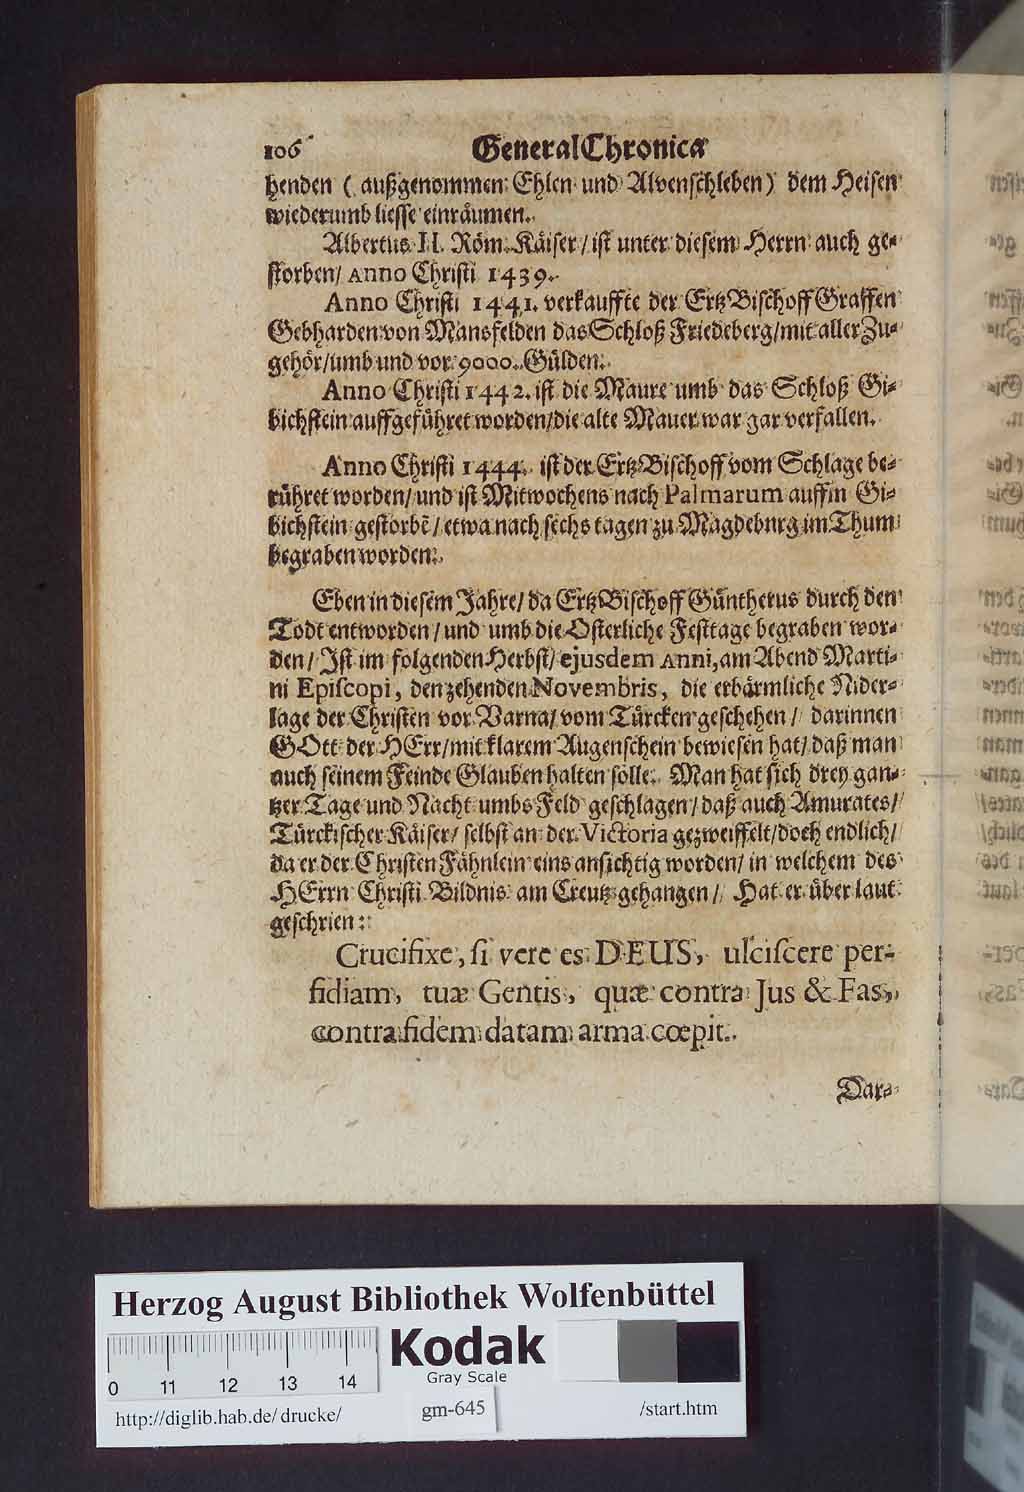 106 General Chronica
henden ( außgenommen Ehlen und Alvenschleben) dem Heisen
wiederumb liesse einräumen.
Albertus II. Röm. Käiser/ ist unter diesem Herrn auch ge-
storben/ Anno Christi 1439.
Anno Christi 1441. verkauffte der Ertz Bischoff Graffen
Gebharden von Mansfelden das Schloß Friedeberg/ mit aller Zu-
gehör/ umb und vor 9000. Gülden.
Anno Christi 1442. ist die Maure umb das Schloß Gi-
bichstein auffgeführet worden/ die alte Mauer war gar verfallen.
Anno Christi 1444. ist der Ertz Bischoff vom Schlage be-
rühret worden/ und ist Mitwochens nach Palmarum auffm Gi-
bichstein gestorbē/ etwa nach sechs tagen zu Magdeburg im Thum
begraben worden.
Eben in diesem Jahre/ da Ertz Bischoff Güntherus durch den
Todt entworden/ und umb die Osterliche Festtage begraben wor-
den/ Ist im folgenden Herbst/ ejusdem Anni, am Abend Marti-
ni Episcopi, den zehenden Novembris, die erbärmliche Nider-
lage der Christen vor Varna/ vom Türcken geschehen/ darinnen
GOtt der HErr/ mit klarem Augenschein bewiesen hat/ daß man
auch seinem Feinde Glauben halten solle. Man hat sich drey gan-
tzer Tage und Nacht umbs Feld geschlagen/ daß auch Amurates/
Türckischer Käiser/ selbst an der Victoria gezweiffelt/ doch endlich/
da er der Christen Fähnlein eins ansichtig worden/ in welchem des
HErrn Christi Bildnis am Creutz gehangen/ Hat er über laut
geschrien:
Crucifixe, si vere es DEUS, ulciscere per-
fidiam, tuæ Gentis, quæ contra Jus & Fas,
contra fidem datam arma cœpit.
Dar-
Herzog August Bibliothek Wolfenbüttel
Kodak
Gray Scale
0 11 12 13 14
http://diglib.hab.de/drucke/ gm-645 /start.htm